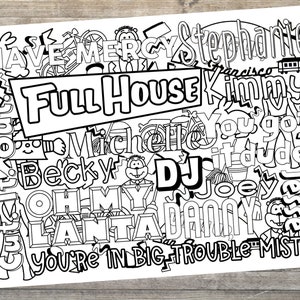 HAVE MERCY
Stephanie
San Francisco
FULL HOUSE
Kimmy
Michelle
You got
it dude
Becky
DJ
Joey
OH MY
LANTA
DANNY
YOU'RE IN BIG TROUBLE MISTER